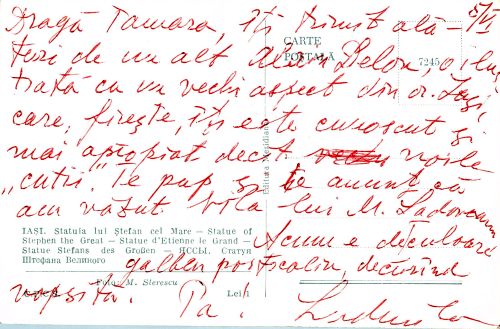 5/VI
Dragă Tamara, îți trimit ală-
turi de un alt Alain Delon, o ilus
trată cu un vechi aspect din or. Iași,
care, firește, îți este cunoscut și
mai apropiat decît noile
„cutii". Te pup și te anunț că
am văzut vila lui M. Sadoveanu
Acum e de culoare
galben portocaliu, de curînd
vopsită. Pa!
CARTE
POSTALĂ
7245
Editura Meridiane
IAȘI. Statuia lui Ștefan cel Mare — Statue of
Stephen the Great — Statue d'Etienne le Grand —
Statue Stefans des Großen — ЯССЫ. Статуя
Штефана Великого
Foto: M. Sterescu
Lei 1